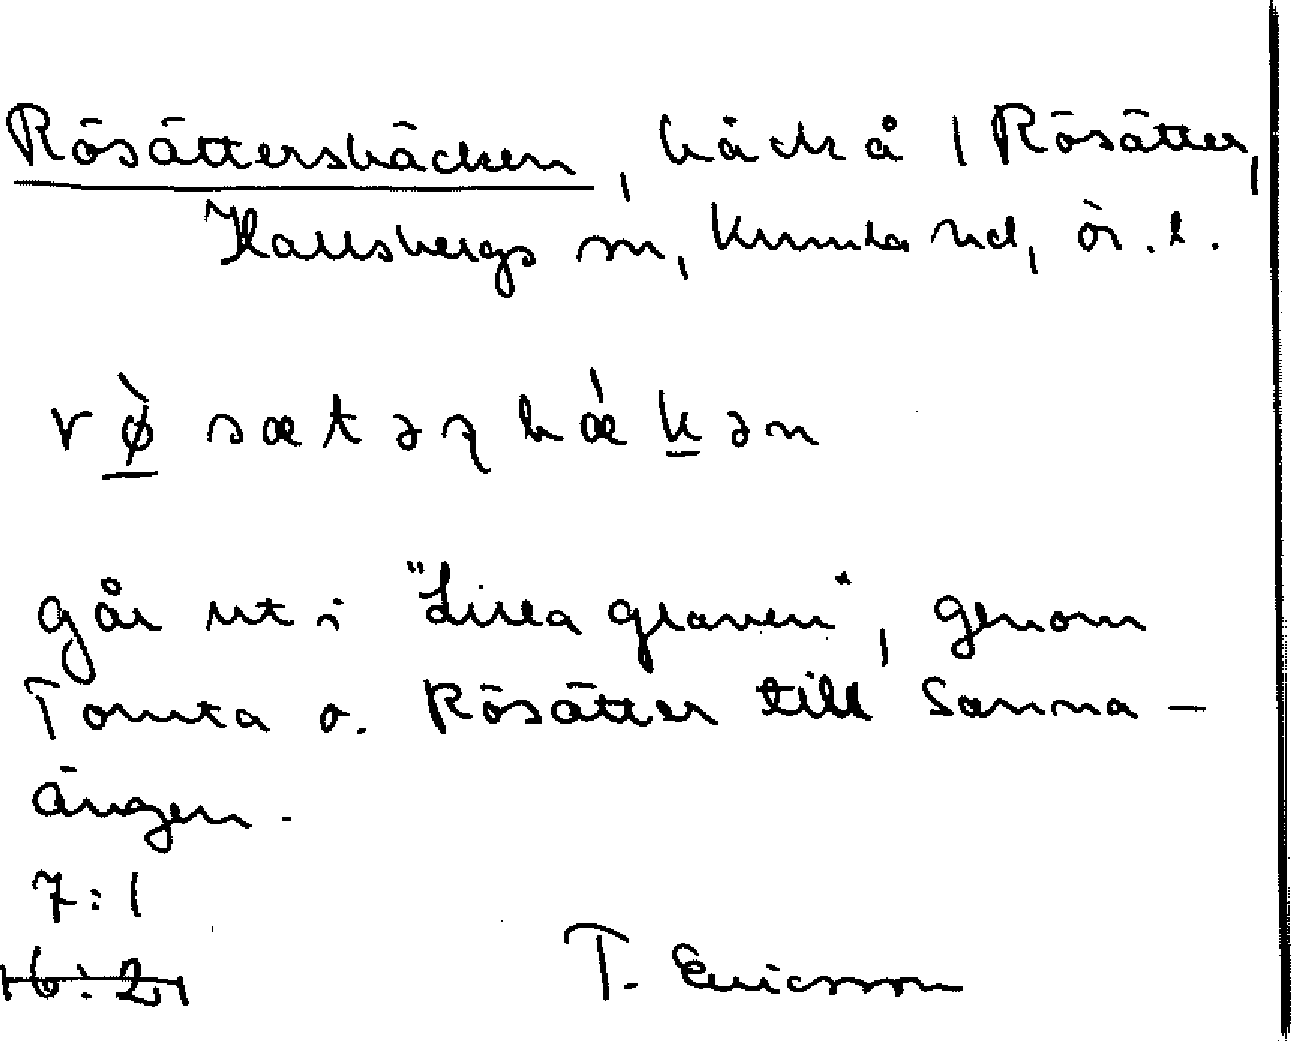 Rösättersbäcken, bäck å 1 Rösätter,
Hallsbergs sn, Kumla hd, ör. l.
rø̀sætəʂbǽkən
går ut i "Lilla graven", genom
Tomta o. Rösätter till Sanna-
ängen.
7:1
16:21
T. Ericsson